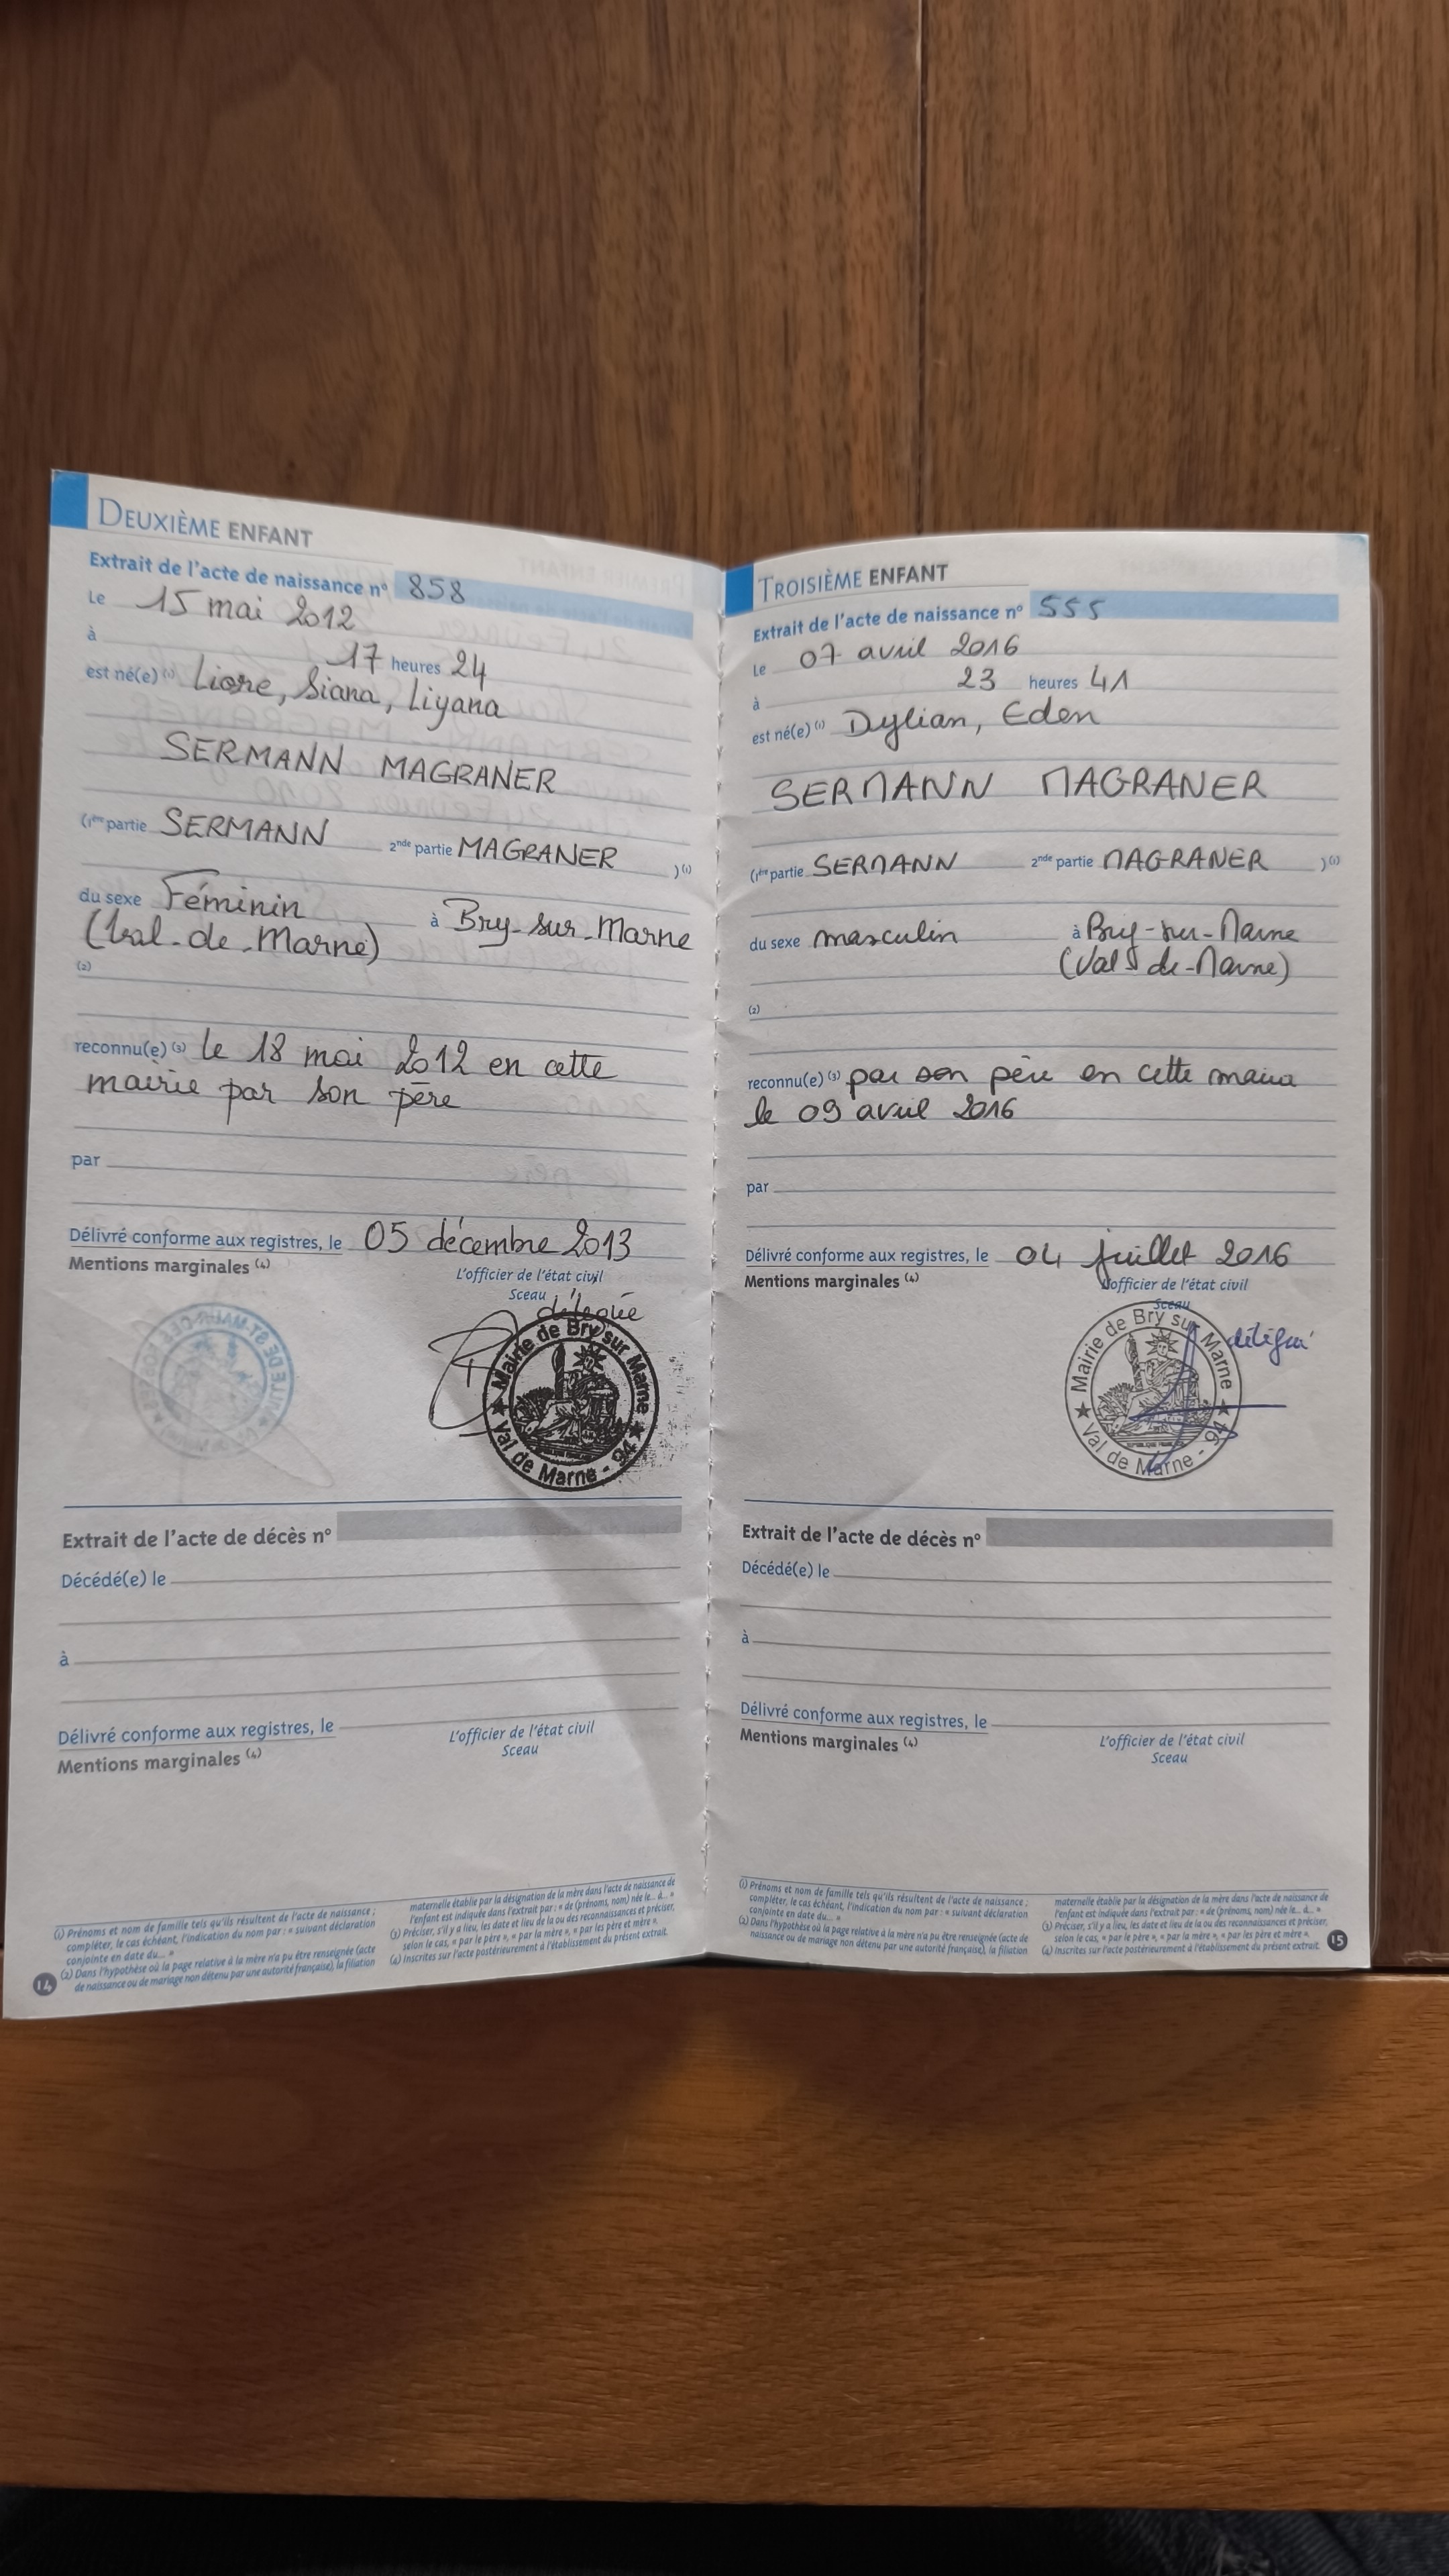 DEUXIÈME ENFANT
Extrait de l'acte de naissance n° 858
Le 15 mai 2012
à 17 heures 24
est né(e) (1) Liore, Siana, Liyana
SERMANN MAGRANER
(1ère partie SERMANN 2nde partie MAGRANER ) (1)
du sexe Féminin à Bry-sur-Marne
(Val-de-Marne)
(2)
reconnu(e) (3) le 18 mai 2012 en cette
mairie par son père
par
Délivré conforme aux registres, le 05 décembre 2013
Mentions marginales (4)
L'officier de l'état civil
Sceau
déléguée
Mairie de Bry sur Marne
Val de Marne - 94
Extrait de l'acte de décès n°
Décédé(e) le
à
Délivré conforme aux registres, le
Mentions marginales (4)
L'officier de l'état civil
Sceau
(1) Prénoms et nom de famille tels qu'ils résultent de l'acte de naissance ;
compléter, le cas échéant, l'indication du nom par : « suivant déclaration
conjointe en date du... »
(2) Dans l'hypothèse où la page relative à la mère n'a pu être renseignée (acte
de naissance ou de mariage non détenu par une autorité française), la filiation
maternelle établie par la désignation de la mère dans l'acte de naissance de
l'enfant est indiquée dans l'extrait par : « de (prénoms, nom) née le... à... »
(3) Préciser, s'il y a lieu, les date et lieu de la ou des reconnaissances et préciser,
selon le cas, « par le père », « par la mère », « par les père et mère ».
(4) Inscrites sur l'acte postérieurement à l'établissement du présent extrait.
14
TROISIÈME ENFANT
Extrait de l'acte de naissance n° 555
Le 07 avril 2016
à 23 heures 41
est né(e) (1) Dylian, Eden
SERMANN MAGRANER
(1ère partie SERMANN 2nde partie MAGRANER ) (1)
du sexe masculin à Bry-sur-Marne
(Val-de-Marne)
(2)
reconnu(e) (3) par son père en cette mairie
le 09 avril 2016
par
Délivré conforme aux registres, le 04 juillet 2016
Mentions marginales (4)
L'officier de l'état civil
Sceau
délégué
Mairie de Bry sur Marne
Val de Marne - 94
Extrait de l'acte de décès n°
Décédé(e) le
à
Délivré conforme aux registres, le
Mentions marginales (4)
L'officier de l'état civil
Sceau
(1) Prénoms et nom de famille tels qu'ils résultent de l'acte de naissance ;
compléter, le cas échéant, l'indication du nom par : « suivant déclaration
conjointe en date du... »
(2) Dans l'hypothèse où la page relative à la mère n'a pu être renseignée (acte de
naissance ou de mariage non détenu par une autorité française), la filiation
maternelle établie par la désignation de la mère dans l'acte de naissance de
l'enfant est indiquée dans l'extrait par : « de (prénoms, nom) née le... à... »
(3) Préciser, s'il y a lieu, les date et lieu de la ou des reconnaissances et préciser,
selon le cas, « par le père », « par la mère », « par les père et mère ».
(4) Inscrites sur l'acte postérieurement à l'établissement du présent extrait.
15